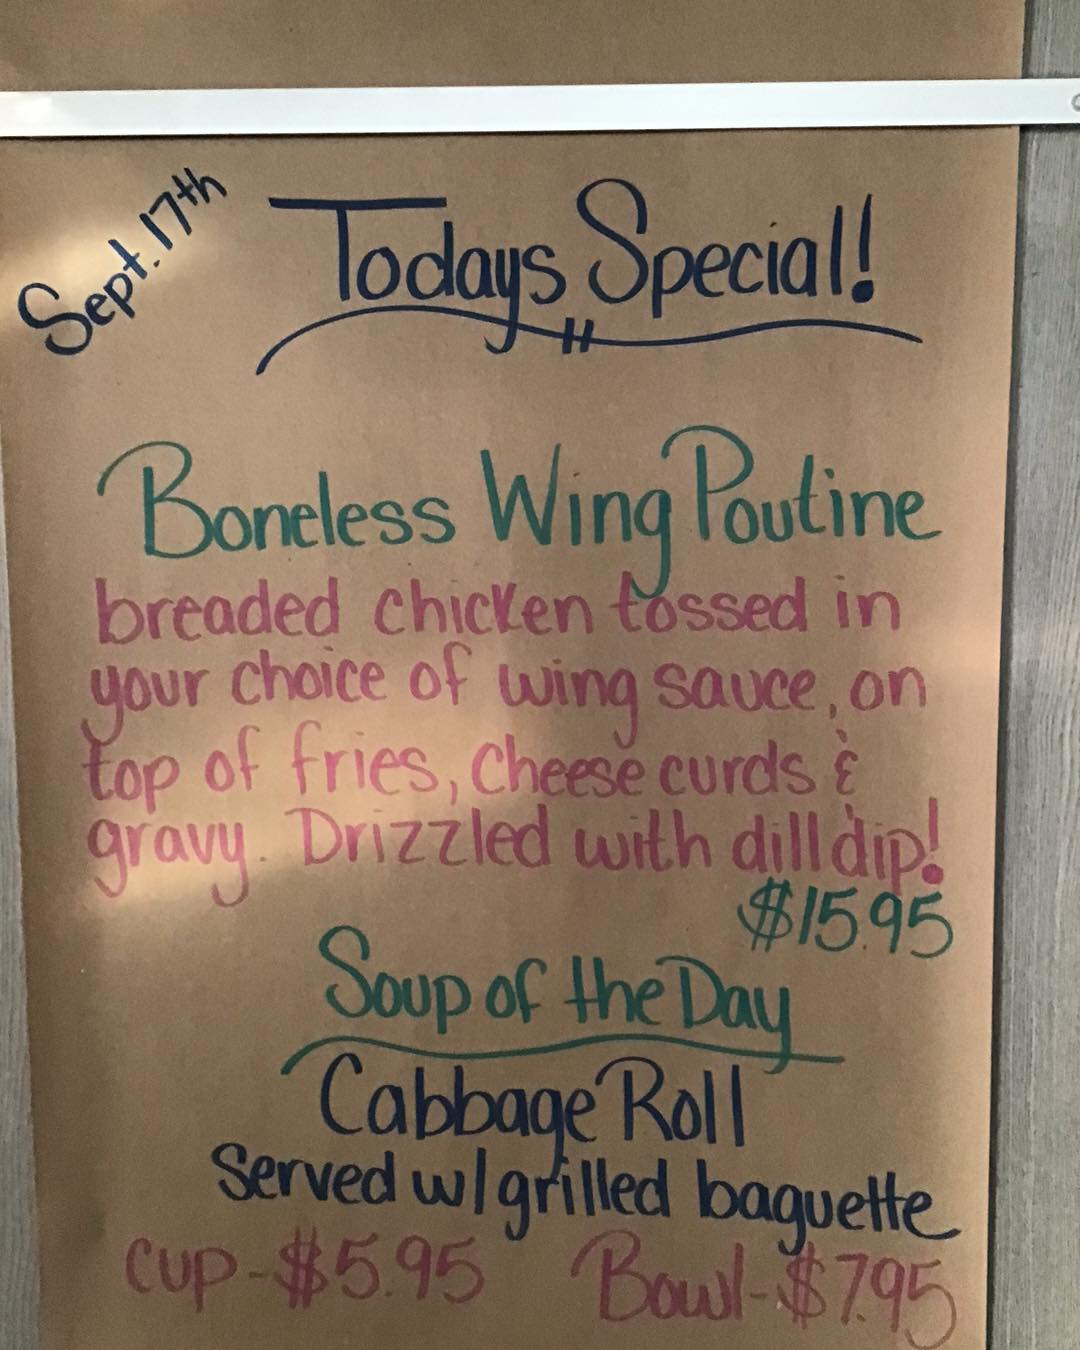 Sept. 17th
Todays Special!
Boneless Wing Poutine
breaded chicken tossed in
your choice of wing sauce, on
top of fries, Cheese curds &
gravy. Drizzled with dill dip!
$15.95
Soup of the Day
Cabbage Roll
Served w/ grilled baguette
cup - $5.95 Bowl - $7.95